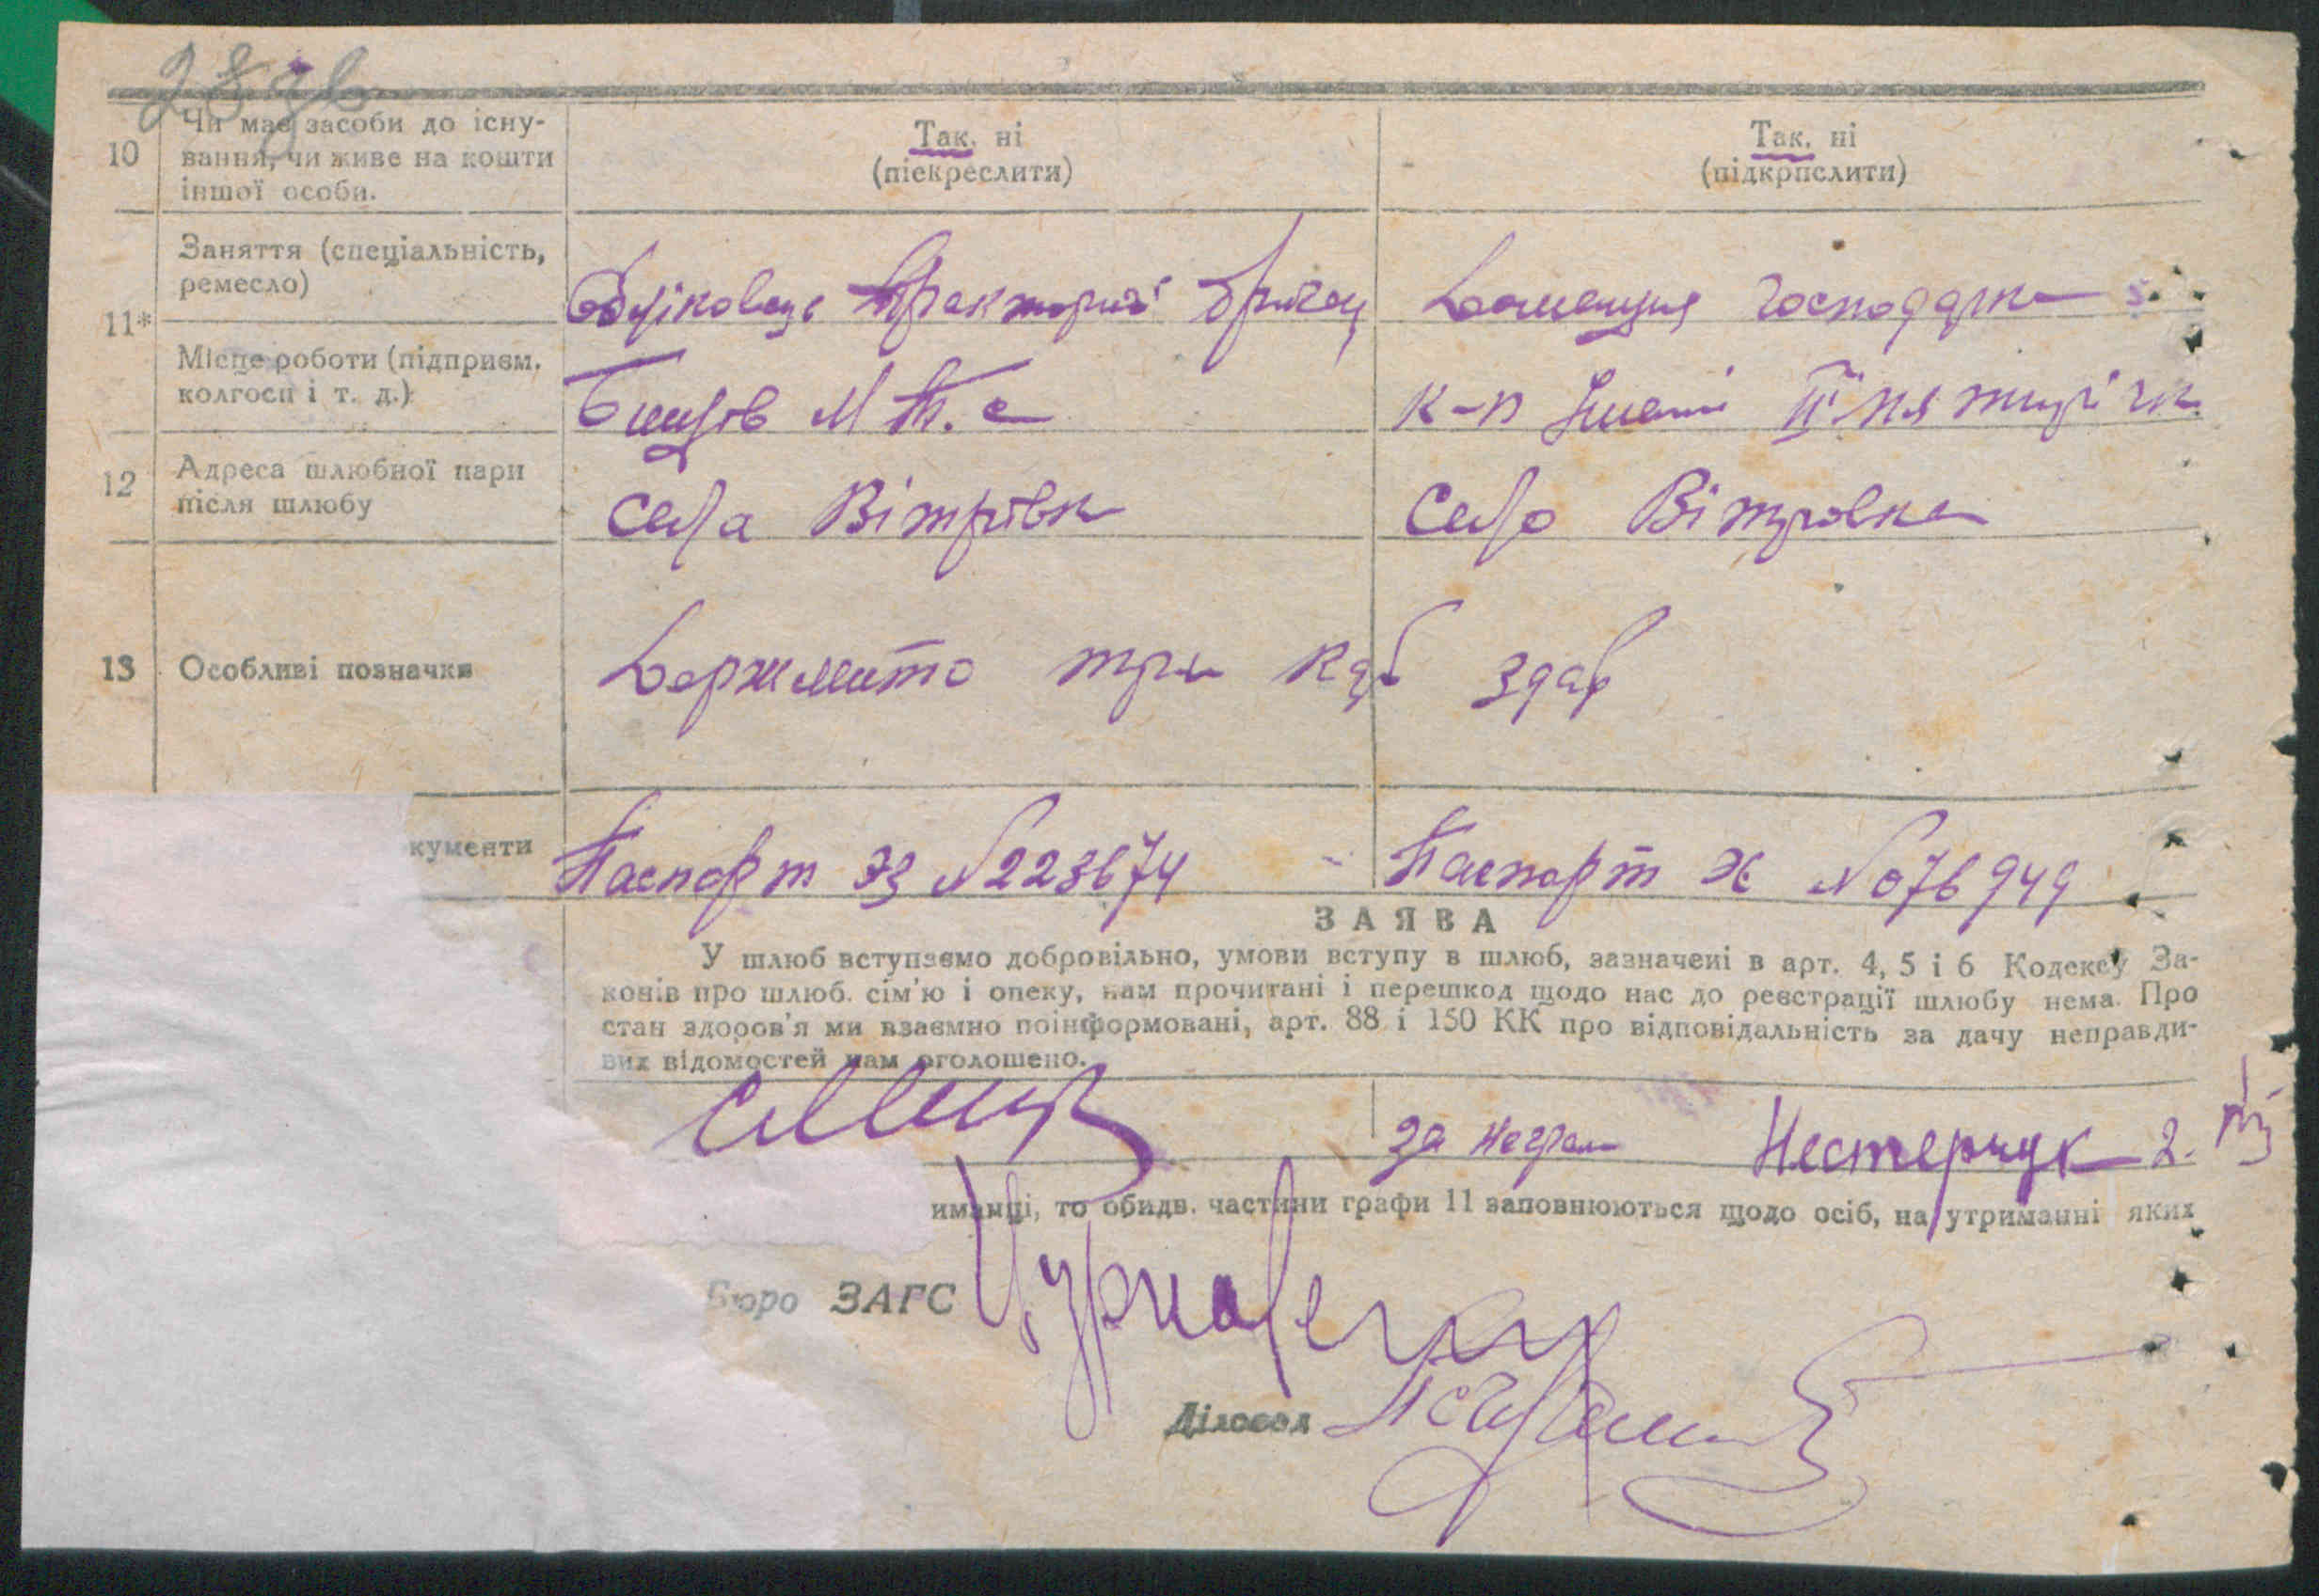 10 Чи має засоби до існу-
вання, чи живе на кошти
іншої особи.
Так, ні
(піекреслити)
Так, ні
(підкрпслити)
11*
Заняття (спеціальність,
ремесло)
Обліковець Тракторної бригад
Домашня господарка
Місце роботи (підприєм.
колгосп і т. д.)
М.Т.С
к-п Імені ІІ пятирічки
12 Адреса шлюбної пари
після шлюбу
села Вітрівк
село Вітровка
13 Особливі позначки
Держмито три крб здав
кументи
Паспорт ЭЗ №223674
Паспорт № 076949
ЗАЯВА
У шлюб вступаємо добровільно, умови вступу в шлюб, зазначені в арт. 4, 5 і 6 Кодексу За-
конів про шлюб. сім'ю і опеку, нам прочитані і перешкод щодо нас до реєстрації шлюбу нема. Про
стан здоров'я ми взаємно поінформовані, арт. 88 і 150 КК про відповідальність за дачу неправди-
вих відомостей нам оголошено.
за неграм Нестерчук
иманці, то обидв. частини графи 11 заповнюються щодо осіб, на утриманні яких
Бюро ЗАГС
Діловод